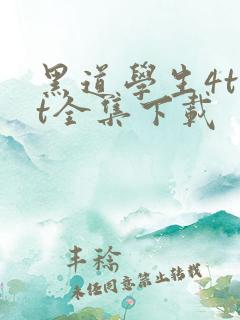 黑道學生4t
t全集下載
丰稔
未经同意禁止转载